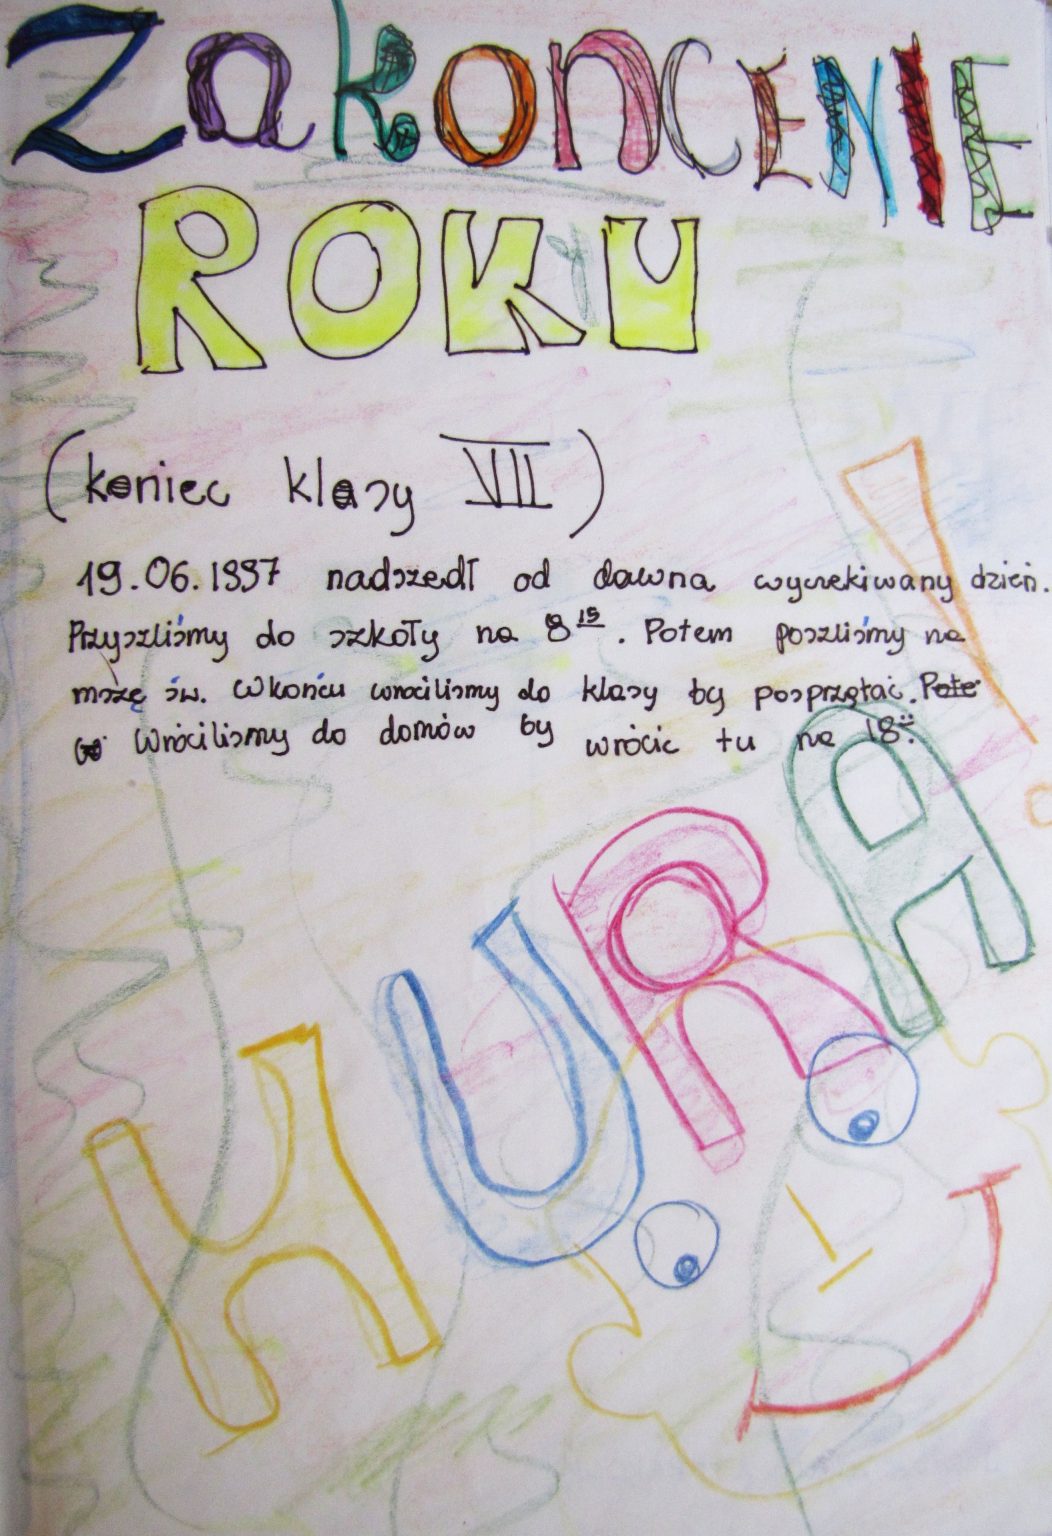 ZakonCENIE
ROKU
(koniec klasy VII)
19.06.1997 nadszedł od dawna wyczekiwany dzień.
Przyszliśmy do szkoły na 8 15. Potem poszliśmy na
mszę św. Wkońcu wrocilismy do klasy by posprzątać. Pote
Wróciliśmy do domów by wrócic tu na 18
HURA!